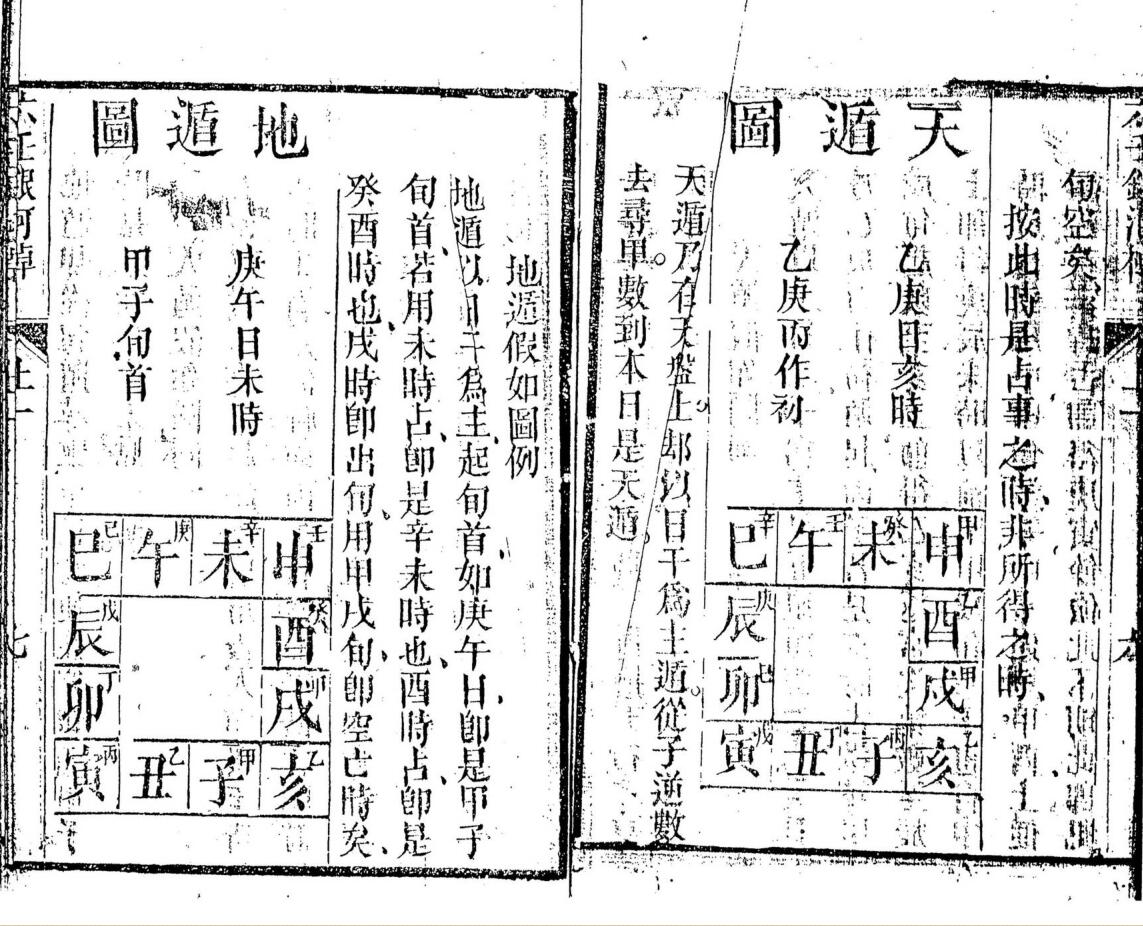 旬空矣
按此時是占事之時非所得之時
天遁圖
乙庚日亥時
乙庚丙作初
申甲
未癸
午壬
巳辛
酉乙
辰庚
戌甲
卯己
亥乙
子丙
丑丁
寅戊
天遁乃在天盤上却以日干為主遁從子逆數
去尋甲數到本日是天遁
地遁假如圖例
地遁以日干為主起旬首如庚午日卽是甲子
旬首若用未時占卽是辛未時也酉時占卽是
癸酉時也戌時卽出旬用甲戌旬卽空亡時矣
地遁圖
庚午日未時
甲子旬首
申壬
未辛
午庚
巳己
酉癸
辰戊
戌
卯丁
亥乙
子甲
丑乙
寅丙